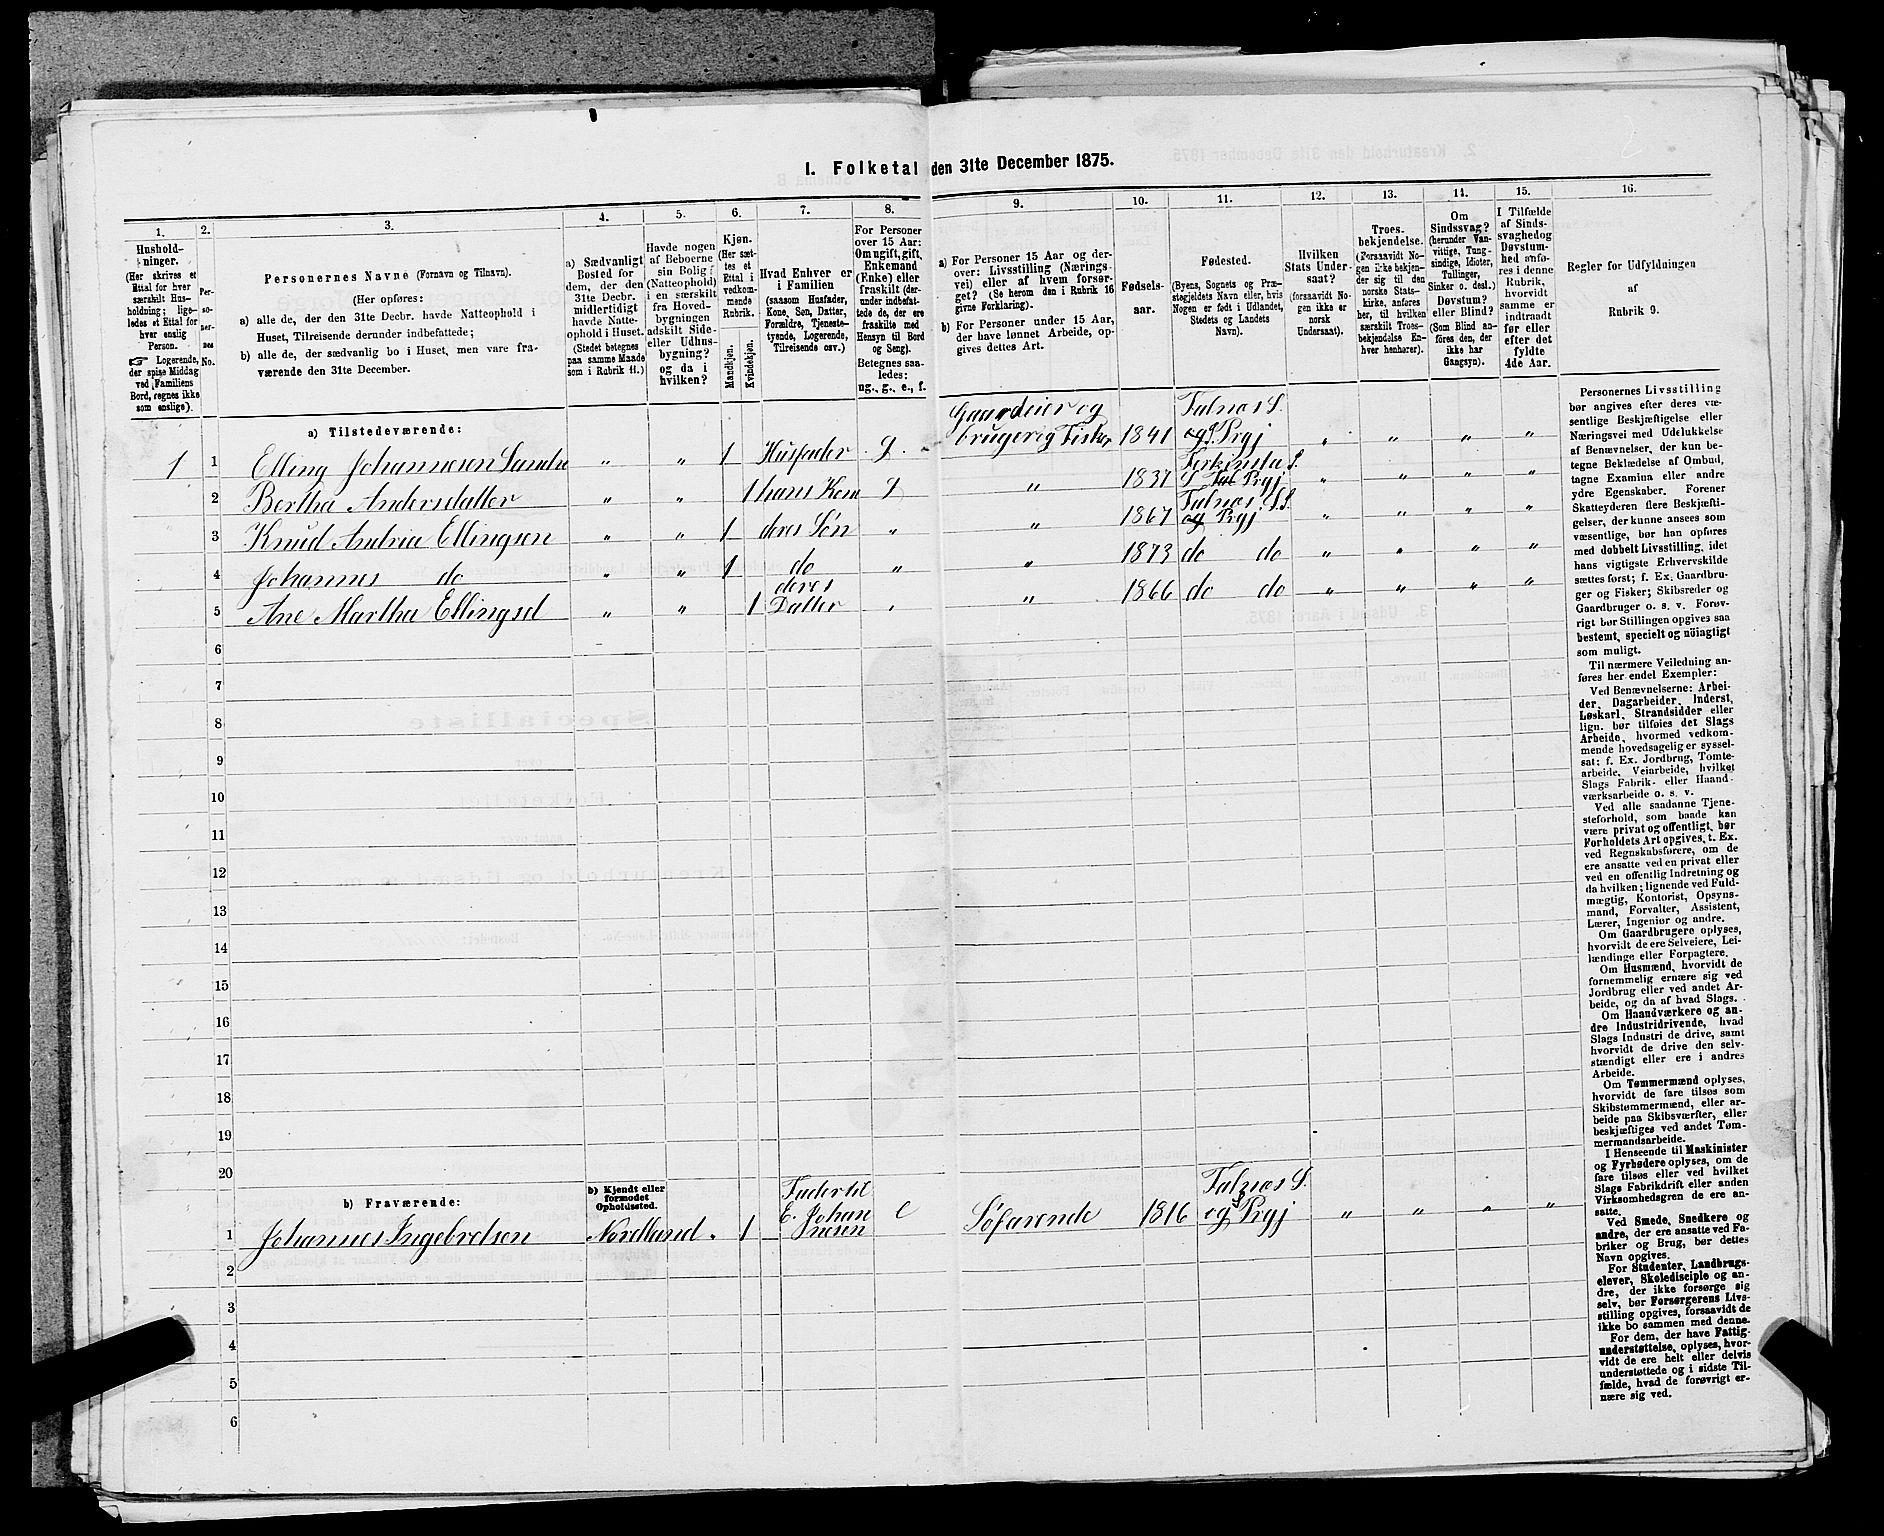 I. Folketal den 31te December 1875.
1. 2. 3. 4. 5. 6. 7. 8. 9. 10. 11. 12. 13. 14. 15. 16.
Hushold-
ninger.
(Her skrives et
Ettal for hver
særskilt Hus-
holdning; lige-
ledes et Ettal for
hver enslig
Person.
☞ Logerende,
der spise Middag
ved Familiens
Bord, regnes ikke
som enslige).
Per-
so-
ner-
nes
No.
Personernes Navne (Fornavn og Tilnavn).
(Her opføres:
a) alle de, der den 31te Decbr. havde Natteophold i
Huset, Tilreisende derunder indbefattede;
b) alle de, der sædvanlig bo i Huset, men vare fra-
værende den 31te December.
a) Sædvanligt
Bosted for
dem, der den
31te Decbr.
midlertidigt
havde Natte-
ophold i Huset.
(Stedet betegnes
paa samme Maade
som i Rubrik 11.)
Havde nogen
af Beboerne
sin Bolig
(Natteophold)
i en særskilt
fra Hoved-
bygningen
adskilt Side-
eller Udhus-
bygning?
og da i
hvilken?
Kjøn.
(Her sæt-
tes et
Ettal i
vedkom-
mende
Rubrik.
Mandkjøn.
Kvindekjøn.
Hvad Enhver er
i Familien
(saasom Husfader,
Kone, Søn, Datter,
Forældre, Tjeneste-
tyende, Logerende,
Tilreisende osv.)
For Personer
over 15 Aar:
Om ugift, gift,
Enkemand
(Enke) eller
fraskilt (der-
under indbefat-
tede de, der ere
fraskilte med
Hensyn til Bord
og Seng).
Betegnes saa-
ledes:
ug., g., e., f.
a) For Personer 15 Aar og der-
over: Livsstilling (Nærings-
vei) eller af hvem forsør-
get? (Se herom den i Rubrik 16
givne Forklaring).
b) For Personer under 15 Aar,
der have lønnet Arbeide, op-
gives dettes Art.
Fødsels-
aar.
Fødested.
(Byens, Sognets og Præ-
stegjeldets Navn eller, hvis
Nogen er født i Udlandet,
Stedets og Landets
Navn).
Hvilken
Stats Under-
saat?
(forsaavidt No-
gen ikke er
norsk
Undersaat).
Troes-
bekjendelse.
(Forsaavidt No-
gen ikke bekjen-
der sig til den
norske Stats-
kirke, anføres
her, til hvilken
særskilt Troes-
bekjendelse En-
hver henhører).
Om
Sindssvag?
(herunder Van-
vittige, Tung-
sindige, Idioter,
Tullinger,
Sinker o. desl.)
Døvstum?
eller Blind?
(Som Blind an-
føres den, der
ikke har
Gangsyn).
I Tilfælde
af Sinds-
svaghed og
Døvstum-
hed anfø-
res i denne
Rubrik,
hvorvidt
samme er
indtraadt
før eller
efter det
fyldte
4de Aar.
Regler for Udfyldningen
af
Rubrik 9.
a) Tilstedeværende:
1 1 Elling Johannesen Sandnes " " 1 Husfader G Gaardeier og bruger og Fisker 1841 Talnæs S. og Prgj " " " "
2 Bertha Andersdatter " " 1 hans Kone G " 1837 S. Prgj " " " "
3 Knud Andrias Ellingsen " " 1 deres Søn " " 1867 Talnæs S. og Prgj " " " "
4 Johannes do " " 1 do " " 1873 do do " " " "
5 Ane Martha Ellingsd " " 1 deres Datter " " 1866 do do " " " "
6
7
8
9
10
11
12
13
14
15
16
17
18
19
20
b) Fraværende:
b) Kjendt eller
formodet
Opholdssted.
1 Johannes Ingebretsen Nordland " 1 Fader til E. Johannesen e Søfarende 1816 Talnæs S. og Prgj " " " "
2
3
4
5
6
Personernes Livsstilling
bør angives efter deres væ-
sentlige Beskjæftigelse eller
Næringsvei med Udelukkelse
af Benævnelser, der kun be-
tegne Beklædelse af Ombud,
tagne Examina eller andre
ydre Egenskaber. Forener
Skatteyderen flere Beskjæfti-
gelser, der kunne ansees som
væsentlige, bør han opføres
med dobbelt Livsstilling, idet
hans vigtigste Erhvervskilde
sættes først; f. Ex. Gaardbru-
ger og Fisker; Skibsreder og
Gaardbruger o. s. v. Forøv-
rigt bør Stillingen opgives saa
bestemt, specielt og nöiagtigt
som muligt.
Til nærmere Veiledning an-
føres her endel Exempler:
Ved Benævnelserne: Arbei-
der, Dagarbeider, Inderst,
Løskarl, Strandsidder eller
lign. bør tilføies det Slags
Arbeide, hvormed vedkom-
mende hovedsagelig er syssel-
sat; f. Ex. Jordbrug, Tomte-
arbeide, Veiarbeide, hvilket
Slags Fabrik- eller Haand-
værksarbeide o. s. v.
Ved alle saadanne Tjene-
steforhold, som baade kan
være privat og offentligt, bør
Forholdets Art opgives, t. Ex.
ved Regnskabsførere, om de
ere ansatte ved en privat eller
ved en offentlig Indretning og
da hvilken; lignende ved Fuld-
mægtig, Kontorist, Opsyns-
mand, Forvalter, Assistent,
Lærer, Ingeniør og andre.
Om Gaardbrugere oplyses,
hvorvidt de ere Selveiere, Lei-
lændinge eller Forpagtere.
Om Husmænd, hvorvidt de
fornemmelig ernære sig ved
Jordbrug eller ved andet Ar-
beide, og da af hvad Slags.
Om Haandværkere og an-
dre Industridrivende, hvad
Slags Industri de drive, samt
hvorvidt de drive den selv-
stændigt eller ere i andres
Arbeide.
Om Tømmermænd oplyses,
hvorvidt de fare tilsøs som
Skibstømmermænd, eller ar-
beide paa Skibsværfter, eller
beskjæftiges ved andet Tøm-
mermandsarbeide.
I Henseende til Maskinister
og Fyrbødere oplyses, om de
fare tilsøs eller ved hvilket
Slags Fabrikdrift eller anden
Virksomhedsgren de ere an-
satte.
Ved Smede, Snedkere og
andre, der ere ansatte ved Fa-
briker og Brug, bør dettes
Navn opgives.
For Studenter, Landbrugs-
elever, Skoledisciple og an-
dre, der ikke forsørge sig
selv, bør Forsørgerens Livs-
stilling opgives, forsaavidt de
ikke bo sammen med denne.
For dem, der have Fattig-
understøttelse, oplyses, hvor-
vidt de ere helt eller delvis
understøttede og i sidste Til-
fælde, hvad de forøvrigt er-
nære sig ved.